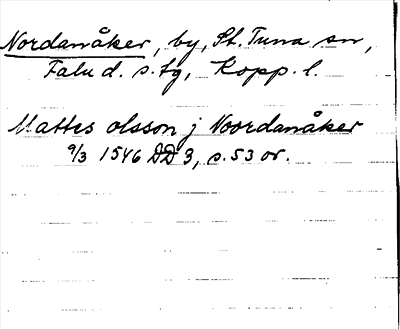 Nordanåker, by, St. Tuna sn,
Falu d. s. tg, Kopp. l.
Mattes olsson j Noordanåker
9/3 1546 DD 3, s. 53 or.